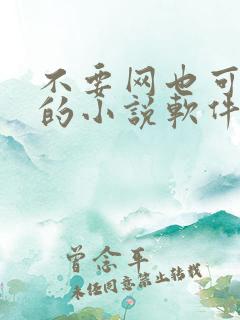 不要网也可
的小説軟件
曾念平
未经同意禁止转载